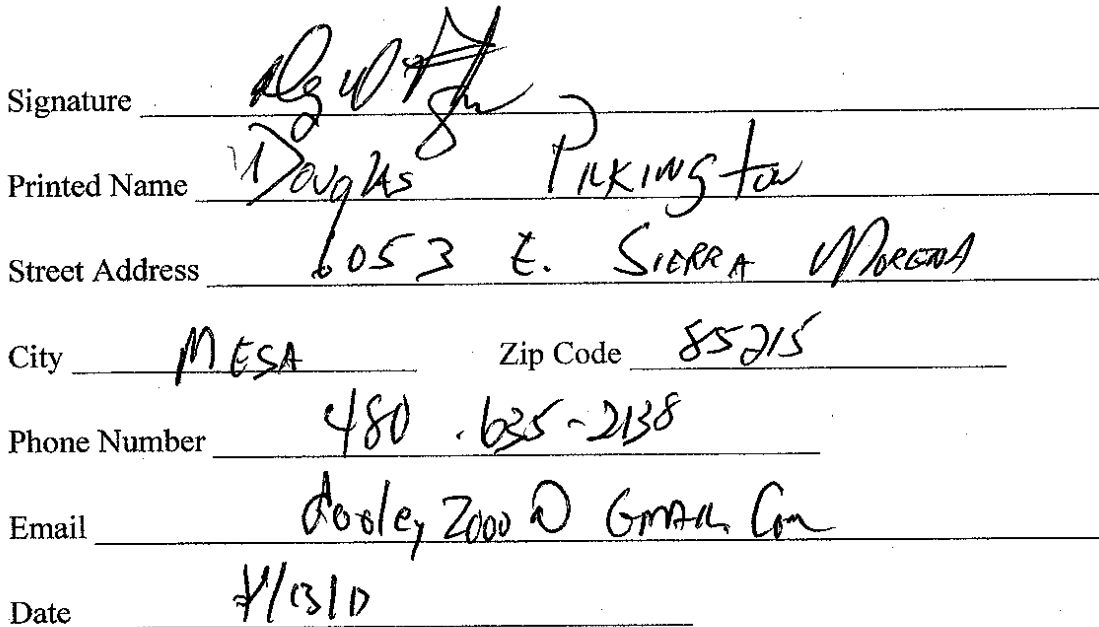 Signature
Printed Name Douglas Pilkington
Street Address 6053 E. SIERRA MORENA
City MESA Zip Code 85215
Phone Number 480.635-2138
Email dooley2000@GMAIL.Com
Date